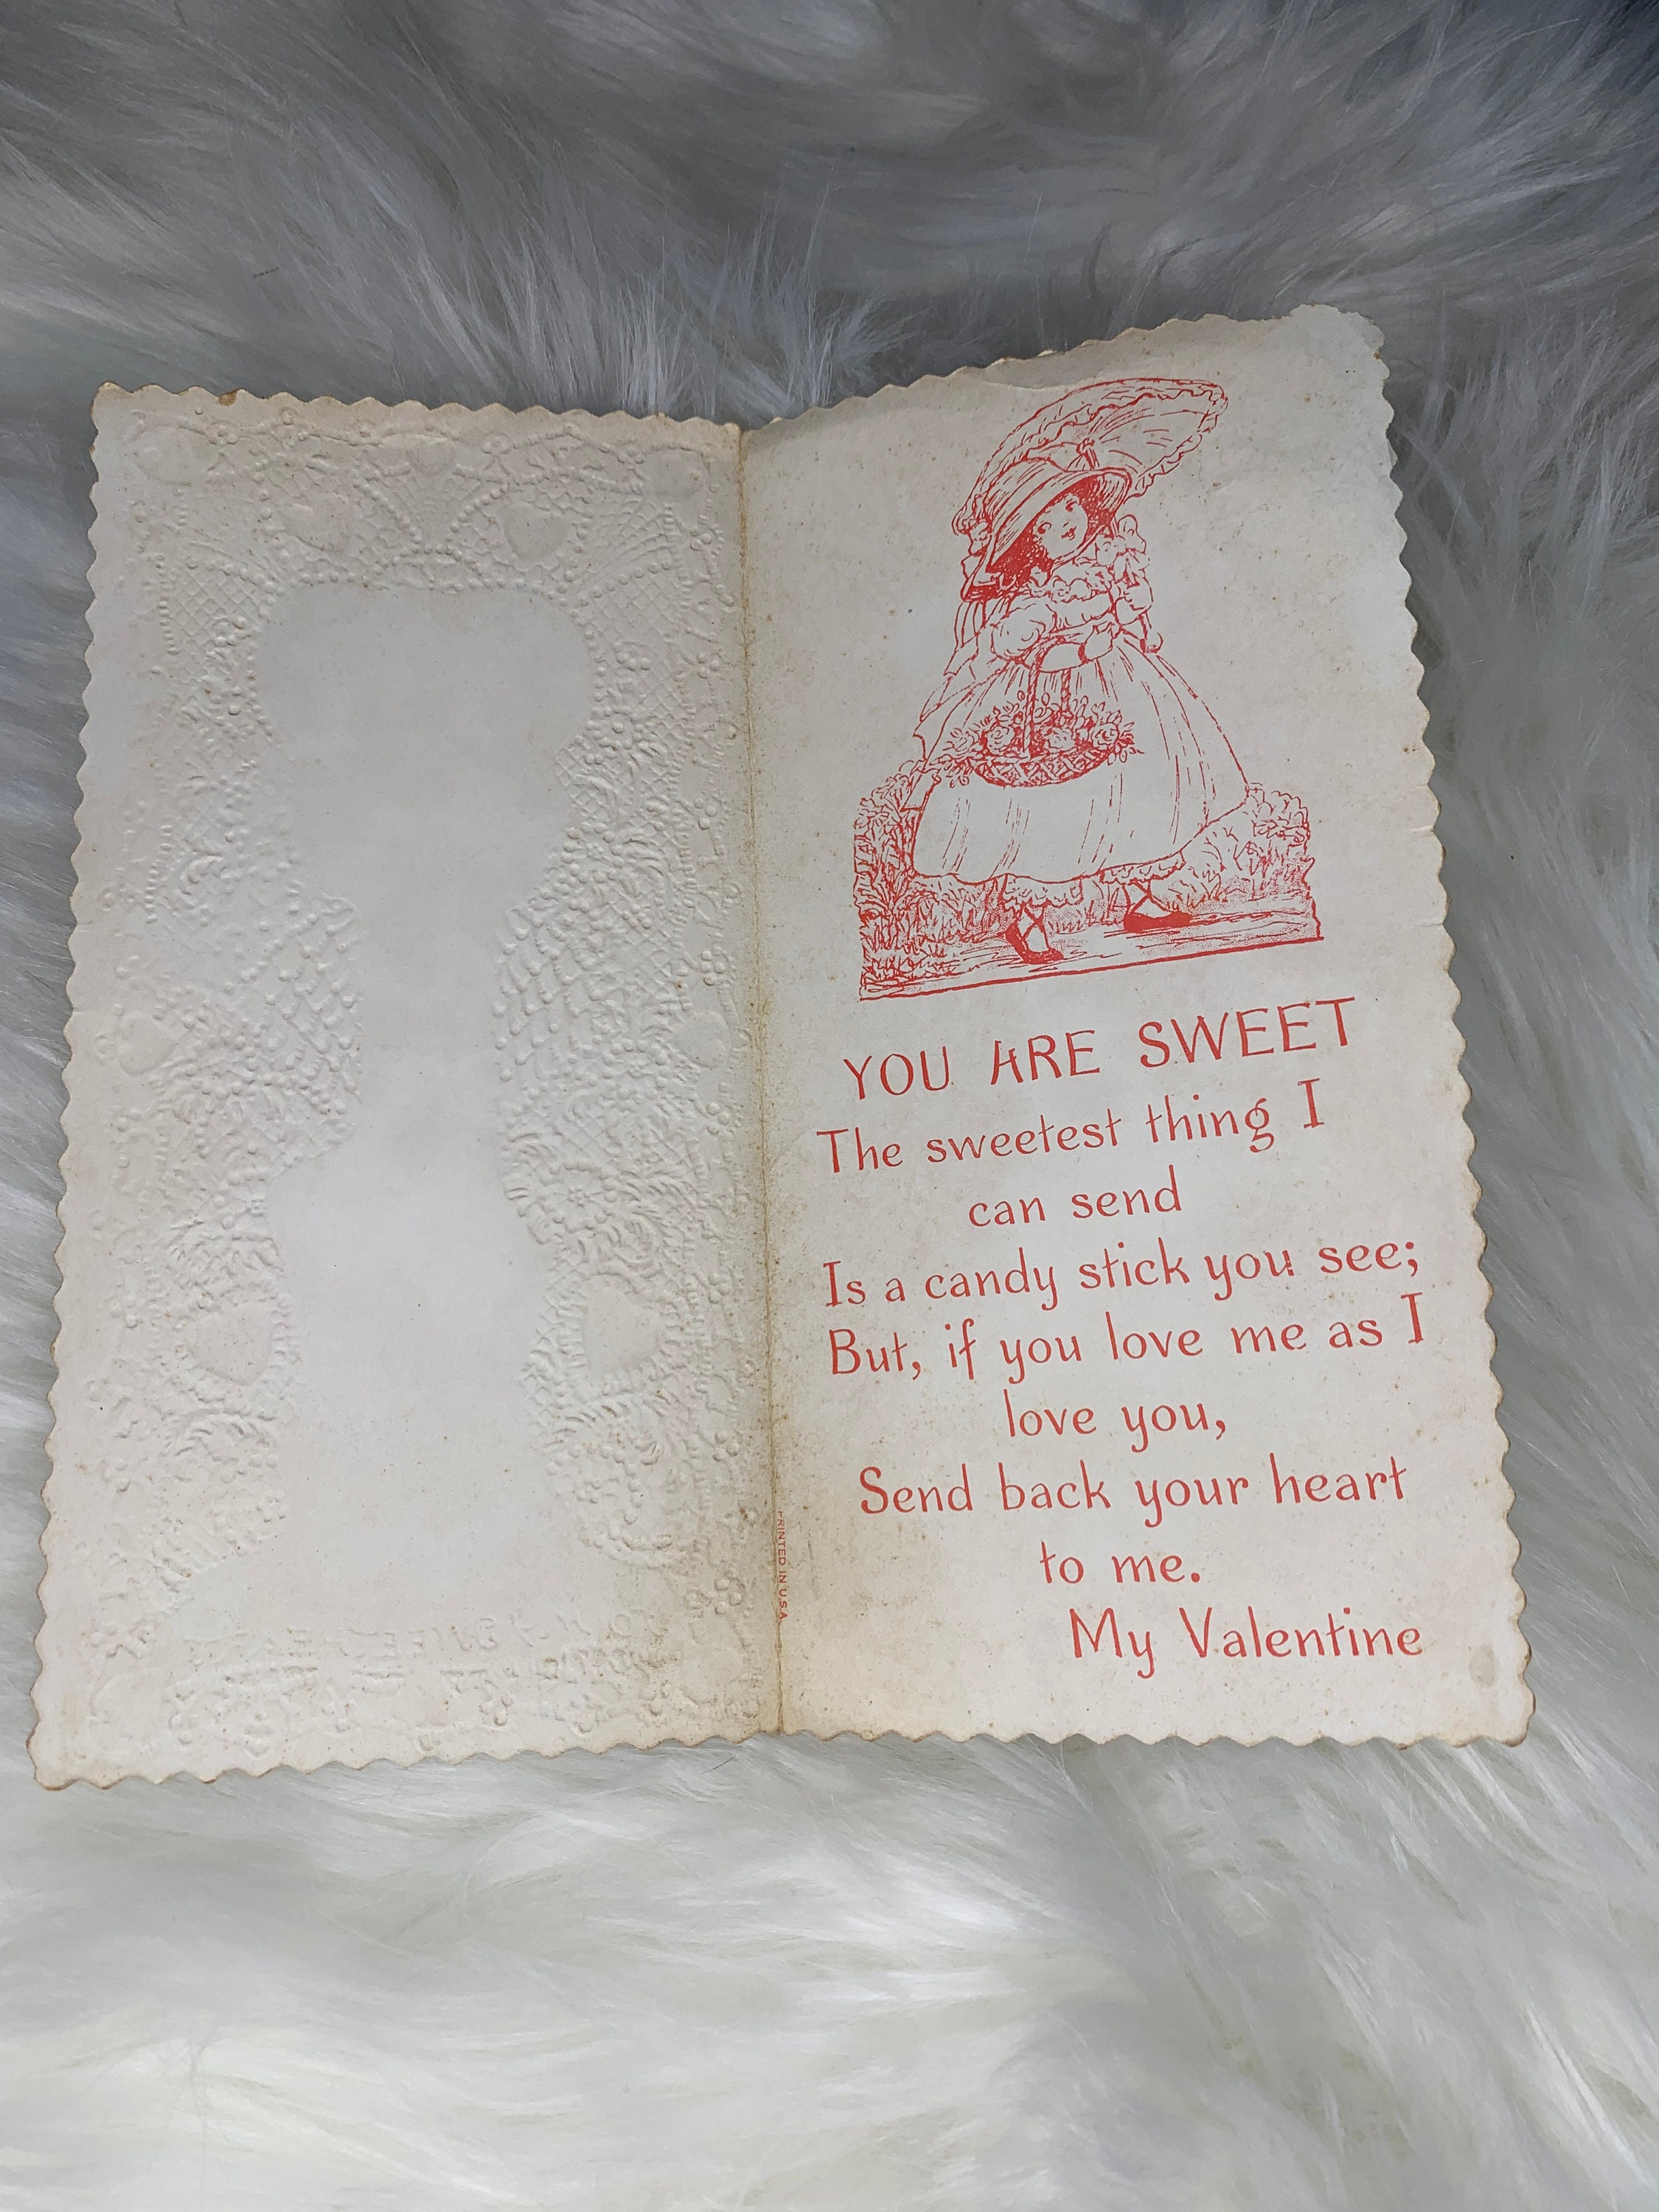 YOU ARE SWEET
The sweetest thing I
can send
Is a candy stick you see;
But, if you love me as I
love you,
Send back your heart
to me.
My Valentine
PRINTED IN U.S.A.